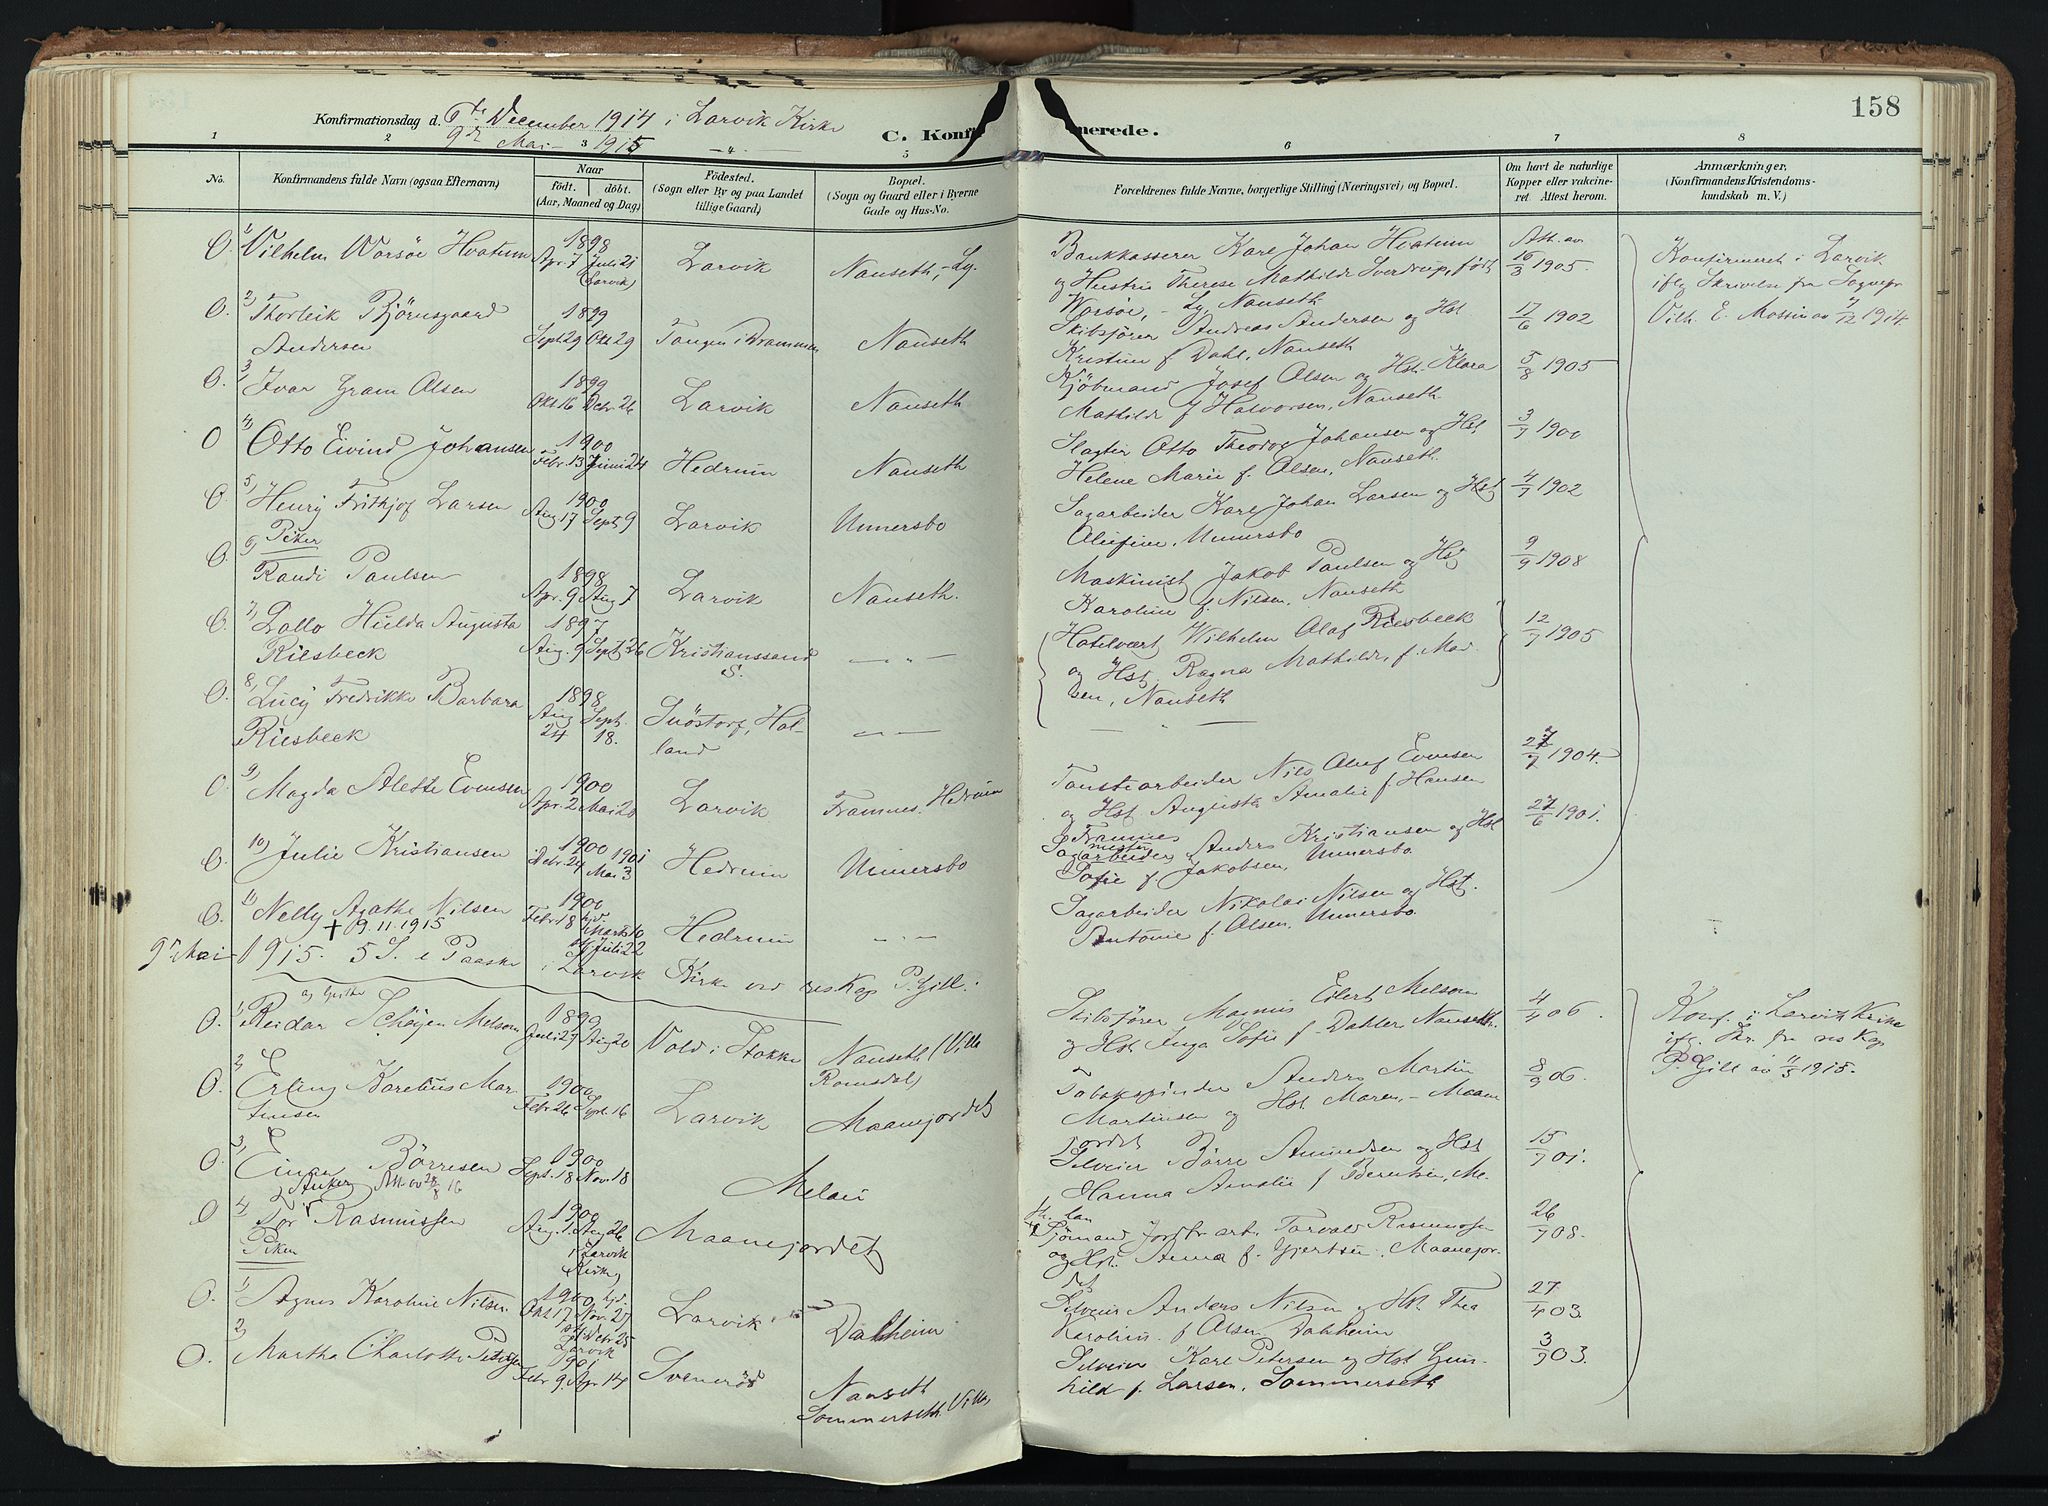 158
Konfirmationsdag d. 6te December 1914 i Larvik Kirke
9de Mai 1915
C. Konfi nerede.
1 2 3 4 5 6 7 8
No.
Konfirmandens fulde Navn (ogsaa Efternavn)
Naar
født. døbt.
(Aar, Maaned og Dag)
Fødested.
(Sogn eller By og paa Landet
tillige Gaard)
Bopæl.
(Sogn og Gaard eller i Byerne
Gade og Hus-No.
Forældrenes fulde Navne, borgerlige Stilling (Næringsvei) og Bopæl.
Om havt de naturlige
Kopper eller vakcine-
ret. Attest herom.
Anmærkninger,
(Konfirmandens Kristendoms-
kundskab m. V.)
O. 1) Vilhelm Worsöe Hvatum
1898
Apr. 7 Juli 21
(Larvik)
Larvik
Nanseth, - Ly.
Bankkasserer Karl Johan Hvatum
og Hustru Therese Mathilde Sverdrup, født
Worsöe, - Ly Nanseth
Att. av
16/3 1905.
Konfirmeret i Larvik
iflg Skrivelse fra Sognepr
Vilh. E. Mossin av 7/12 1914.
O. 2) Thorleik Bjørnsgaard
Andersen
1899
Sept 29 Okt 29
Tangen i Drammen
Nanseth
Skibsfører Andreas Andersen og Hst.
Kristine f. Dahl, Nanseth
17/6 1902
O. 3) Ivar Gram Olsen
1899
Okt 16 Decbr. 26
Larvik
Nanseth
Kjøbmand Josef Olsen og Hst. Klara
Mathilde f. Halvorsen, Nanseth
5/8 1905
O 4) Otto Eivind Johansen
1900
Febr. 13 Juni 24
Hedrum
Nanseth
Slagter Otto Theodor Johansen og Hst
Helene Marie f. Olsen, Nanseth.
3/7 1900
O. 5) Henry Frithjof Larsen
1900
Aug 17 Sept 9
Larvik
Unnersbo
Sagarbeider Karl Johan Larsen og Hst
Unnersbo
4/7 1902
Piker
O. 6) Randi Paulsen
1898
Apr. 9 Aug 7
Larvik
Nanseth.
Maskinist Jakob Paulsen og Hst
Karoline f. Nilsen, Nanseth
9/9 1908
O. 7) Lallo Hulda Augusta
Riesbeck
1897
Aug. 9 Sept 26
Kristianssand
S.
— „ —
Hotelvært Wilhelm Olaf Riesbeck
og Hst. Ragna Mathilde, f. Mad
sen, Nanseth
12/7 1905
O. 8) Lucy Fredrikke Barbara
Riesbeck
1898
Aug Sept.
24 18.
Snöstorf, Hal-
land
— „ —
— „ —
O. 9) Magda Alette Evensen
1900
Apr. 2 Mai 20
Larvik
Framnes, Hedrum
Tomtearbeider Nils Oluf Evensen
og Hst Augusta Amalie f. Hansen
Framnes
1904
O. 10) Julie Kristiansen
1900 1901
Decbr. 24 Mai 3
Hedrum
Unnersbo
Sagmester Anders Kristiansen og Hst
Sofie f. Jakobsen, Unnersbo
27/6 1901.
O. 11) Nelly Agathe Nilsen
† 9.11.1915
1900
Febr 18 hjd.
Marts 10
st. Juli 22
Hedrum
— „ —
Sagarbeider Nikolai Nilsen og Hst.
Antonie f. Olsen, Unnersbo.
9de Mai 1915. 5 S. e Paaske i Larvik Kirke ved res Kap P. Gjill.
O. 1) Reidar Schøyen Melsom
1899
Juli 27 Aug 20
Vold i Stokke
Nanseth (Villa
Romsdal)
Skibsfører Magnus Eilert Melsom
og Hst Inga Sofie f. Dahler Nanseth.
4/4 06.
Konf. i Larvik Kirke
iflg. Skr. fra res Kap
P. Gjill av 11/5 1915.
O. 2) Erling Karelius Mar-
tinsen
1900
Febr. 26 Sept. 16
Larvik
Maanejordet
Tobakspinder Anders Martin
Martinsen og Hst. Maren, - Maane
jordet
8/9 06.
O. 3) Einar Börresen
1900
Sept. 18 Nov. 18
Melöe
Selveier Börre Amundsen og Hst
Hanna Amalie f Berntsen, Me-
15/7 01.
O 4) Tor Anker Rasmussen
1900
Aug. 1 Aug 26
i Larvik
Kirke
Maanejordet
Sjømand Torvald Rasmussen
og Hst. Anna f. Gjertsen, Maanejor-
det
26/7 08.
Piker
O. 1) Agnes Karoline Nilsen
1900 hjd.
Okt 17 Nov. 27
st. Decbr 25
Larvik
Larvik
Dalheim
Selveier Anders Nilsen og Hst. Thea
Karoline f Olsen Dalheim
27/4 03.
O. 2) Martha Charlotte Petersen
1901
Febr 9 Apr 14
Svenerød
Nanseth
Sommerseth Villa
Selveier Karl Petersen og Hst Gun-
hild f. Larsen, Sommerseth
3/9 03.